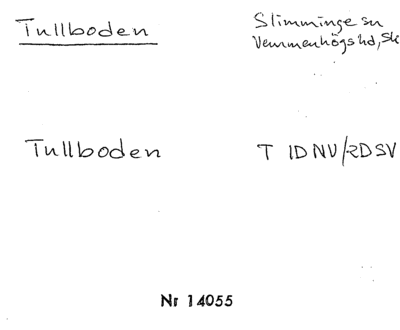 Tullboden
Slimminge sn
Vemmenhögs hd, Sk
Tullboden
T 1DNV/2DSV
Nr 14055